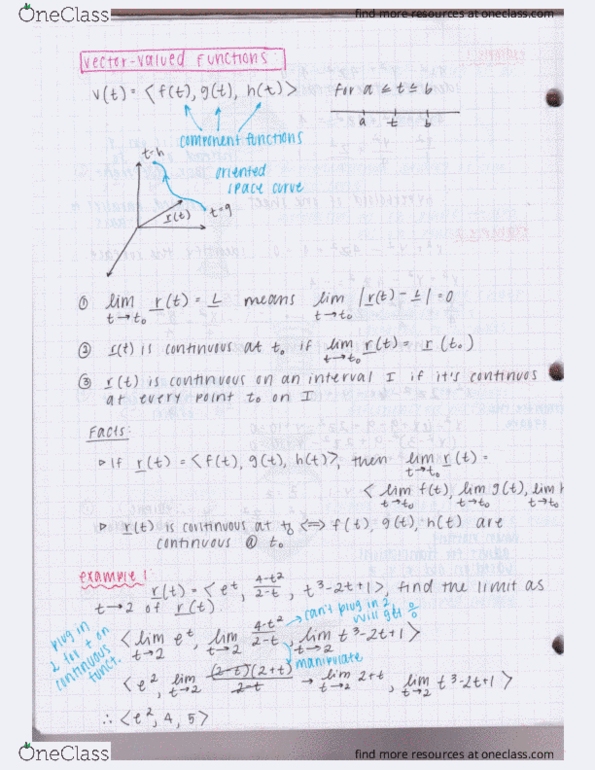 OneClass
find more resources at oneclass.com
vector-valued functions
v(t) = ⟨f(t), g(t), h(t)⟩ for a ≤ t ≤ b
a t b
component functions
t=h
oriented
space curve
r(t) t=g
① lim r(t) = L means lim |r(t) - L| = 0
t→t₀ t→t₀
② r(t) is continuous at t₀ if lim r(t) = r(t₀)
t→t₀
③ r(t) is continuous on an interval I if it's continuos
at every point t₀ on I
Facts:
▷ If r(t) = ⟨f(t), g(t), h(t)⟩, then lim r(t) =
t→t₀
⟨ lim f(t), lim g(t), lim h
t→t₀ t→t₀ t→t₀
▷ r(t) is continuous at t₀ ⟺ f(t), g(t), h(t) are
continuous @ t₀
example 1:
r(t) = ⟨e^t, (4-t²)/(2-t), t³-2t+1⟩, find the limit as
t→2 of r(t)
plug in
2 for t on
continuous
funct.
can't plug in 2
will get 0/0
⟨ lim e^t, lim (4-t²)/(2-t), lim t³-2t+1⟩
t→2 t→2 t→2
manipulate
⟨e², lim (2-t)(2+t)/(2-t) → lim 2+t, lim t³-2t+1⟩
t→2 t→2 t→2
∴ ⟨e², 4, 5⟩
OneClass
find more resources at oneclass.com